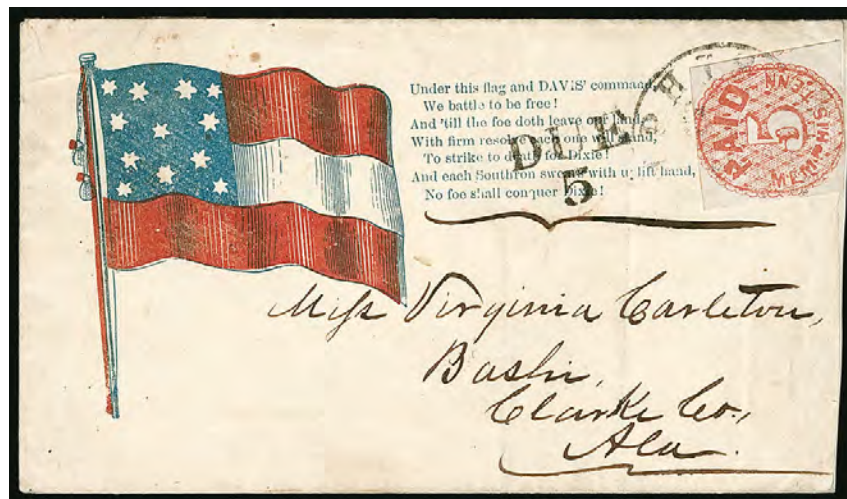 Under this flag and DAVIS' command,
We battle to be free!
And 'till the foe doth leave our land,
With firm resolve each one will stand,
To strike to death for Dixie!
And each Southron swears with uplift hand,
No foe shall conquer Dixie!
DUE
5
PAID
5
MEMPHIS TENN
Miss Virginia Carleton,
Bashi,
Clarke Co.,
Ala.